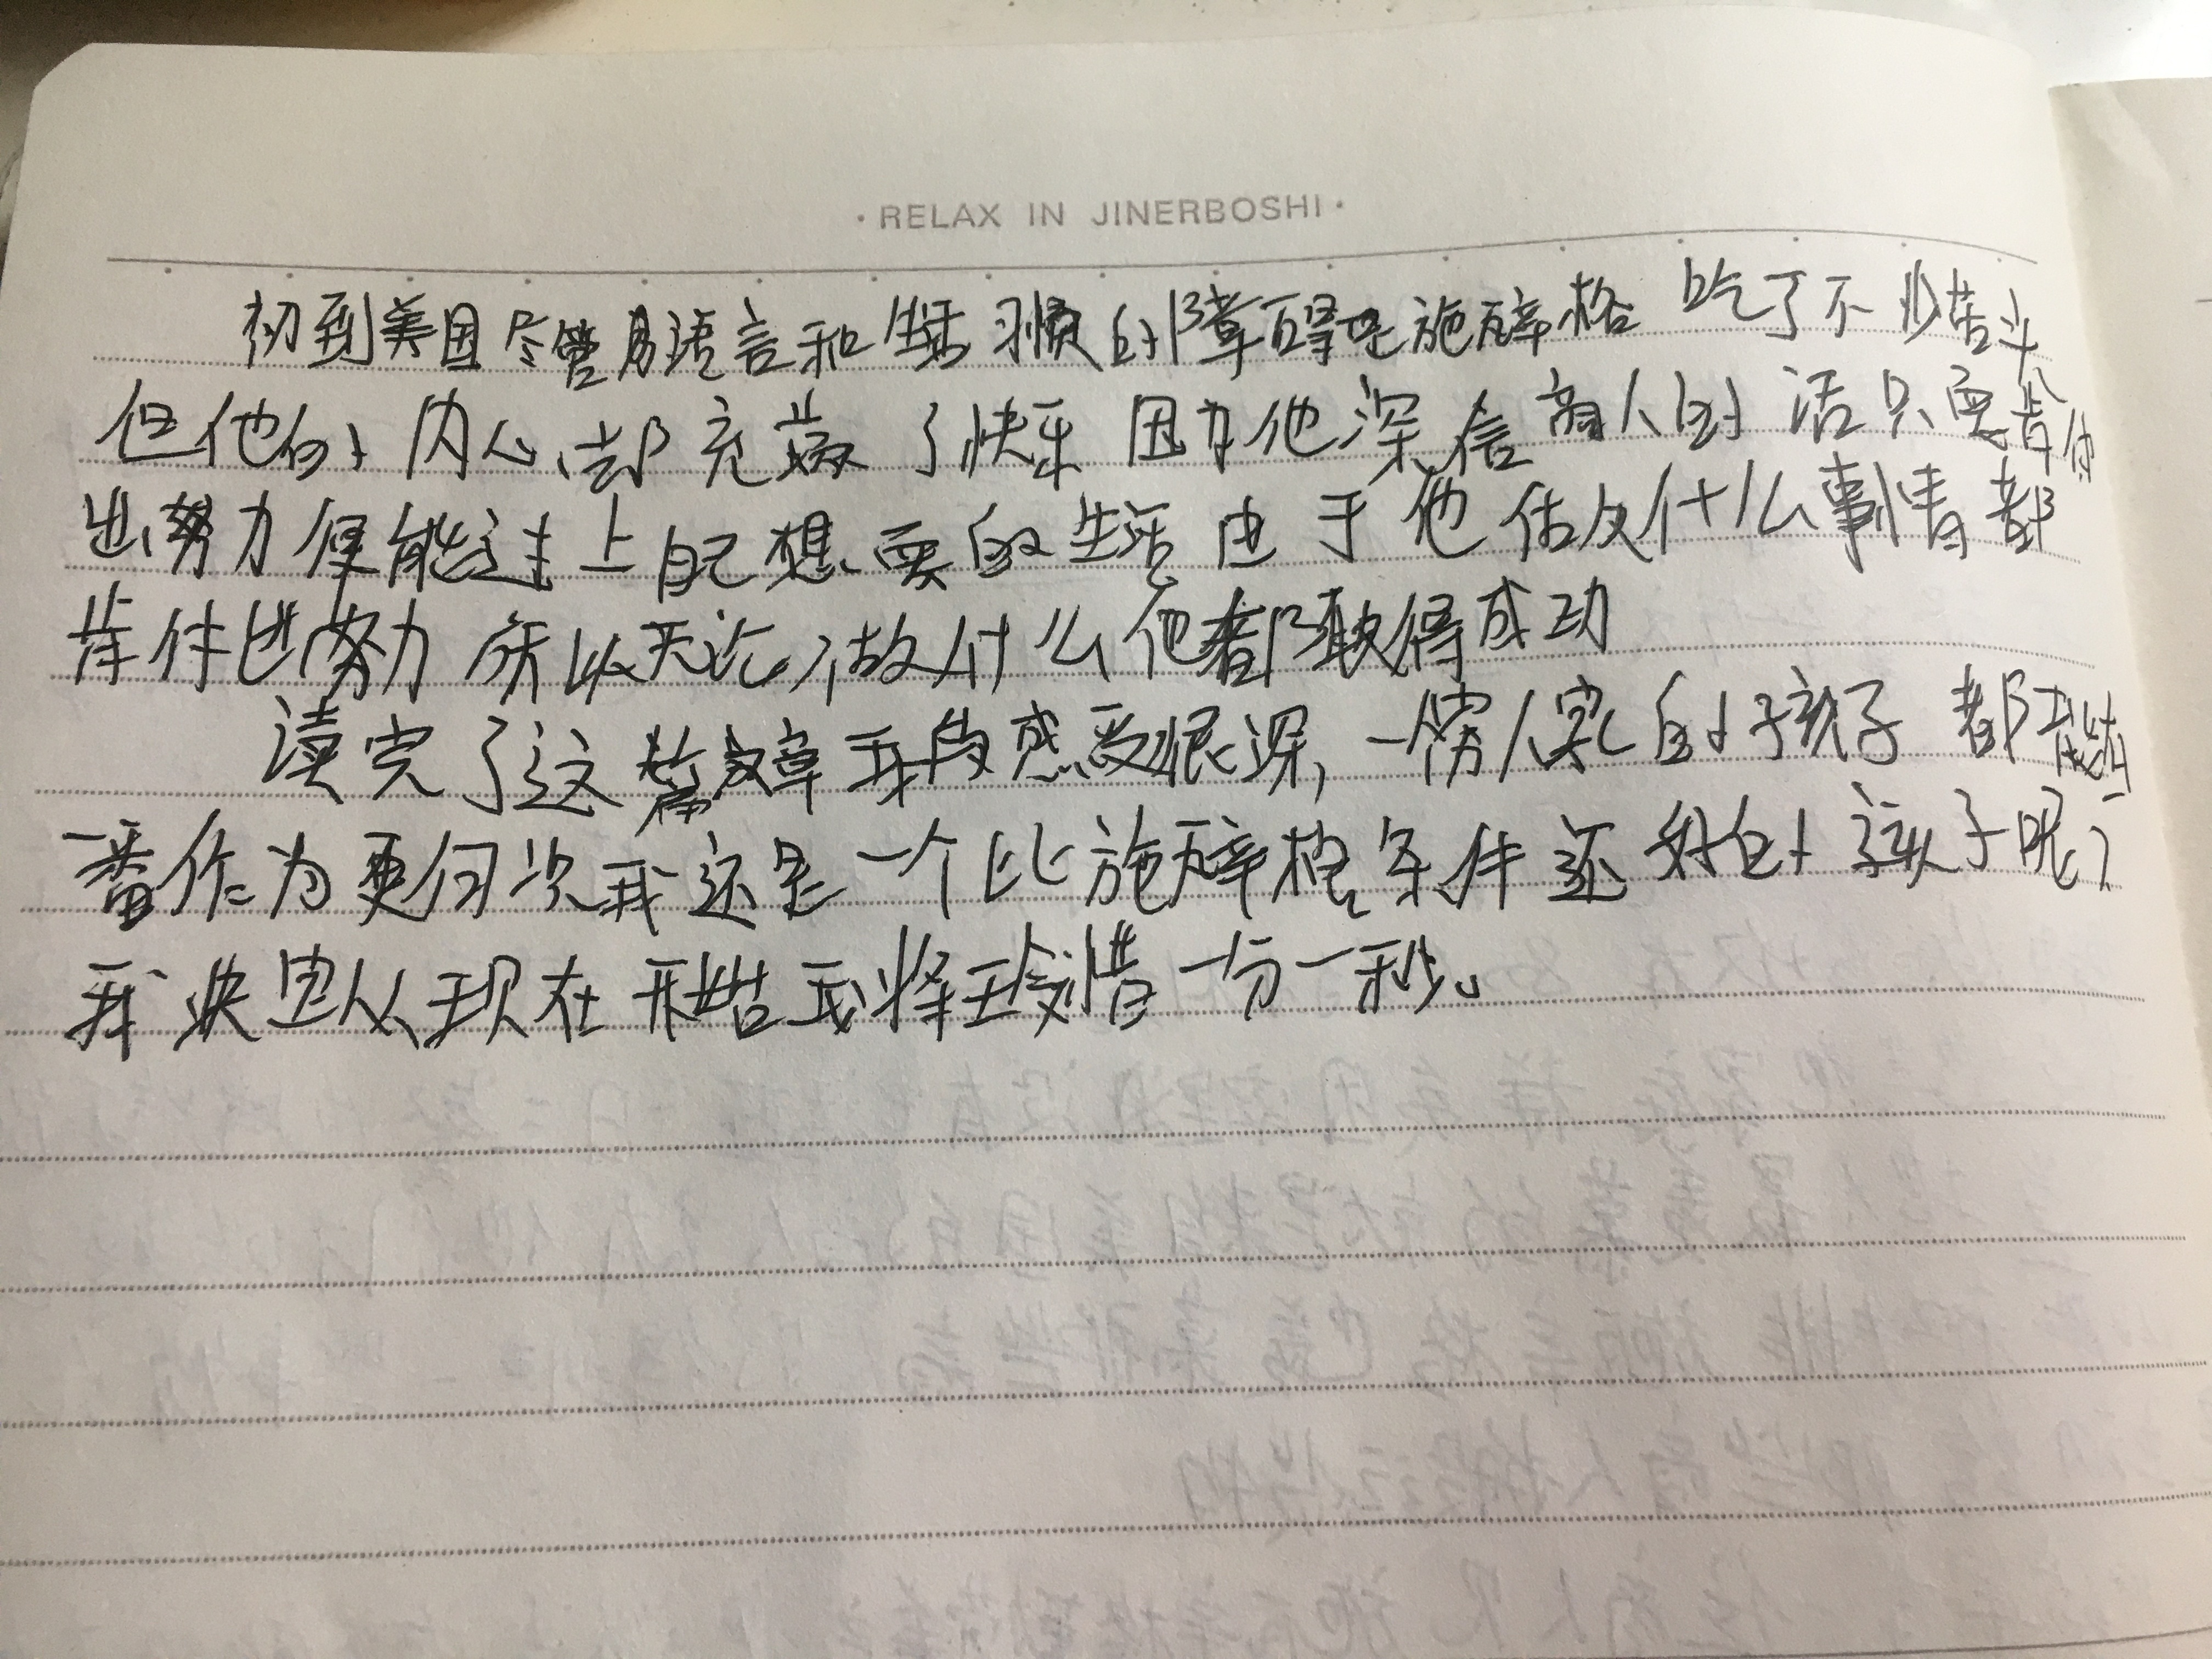 · RELAX IN JINERBOSHI ·
初到美国尽管因语言和生活习惯的障碍让施瓦辛格 吃了不少苦头
但他的内心却充满了快乐 因为他深信 商人的 话只要肯付
出努力便能过上自己想要的生活 由于他做什么事情都
肯付出努力 所以无论做什么他都取得成功
读完了这篇文章我感受很深, 一穷人家的孩子 都
一番作为更何况我还是一个比施瓦辛格条件还好的孩子呢?
我决定从现在开始我将珍惜一分一秒。